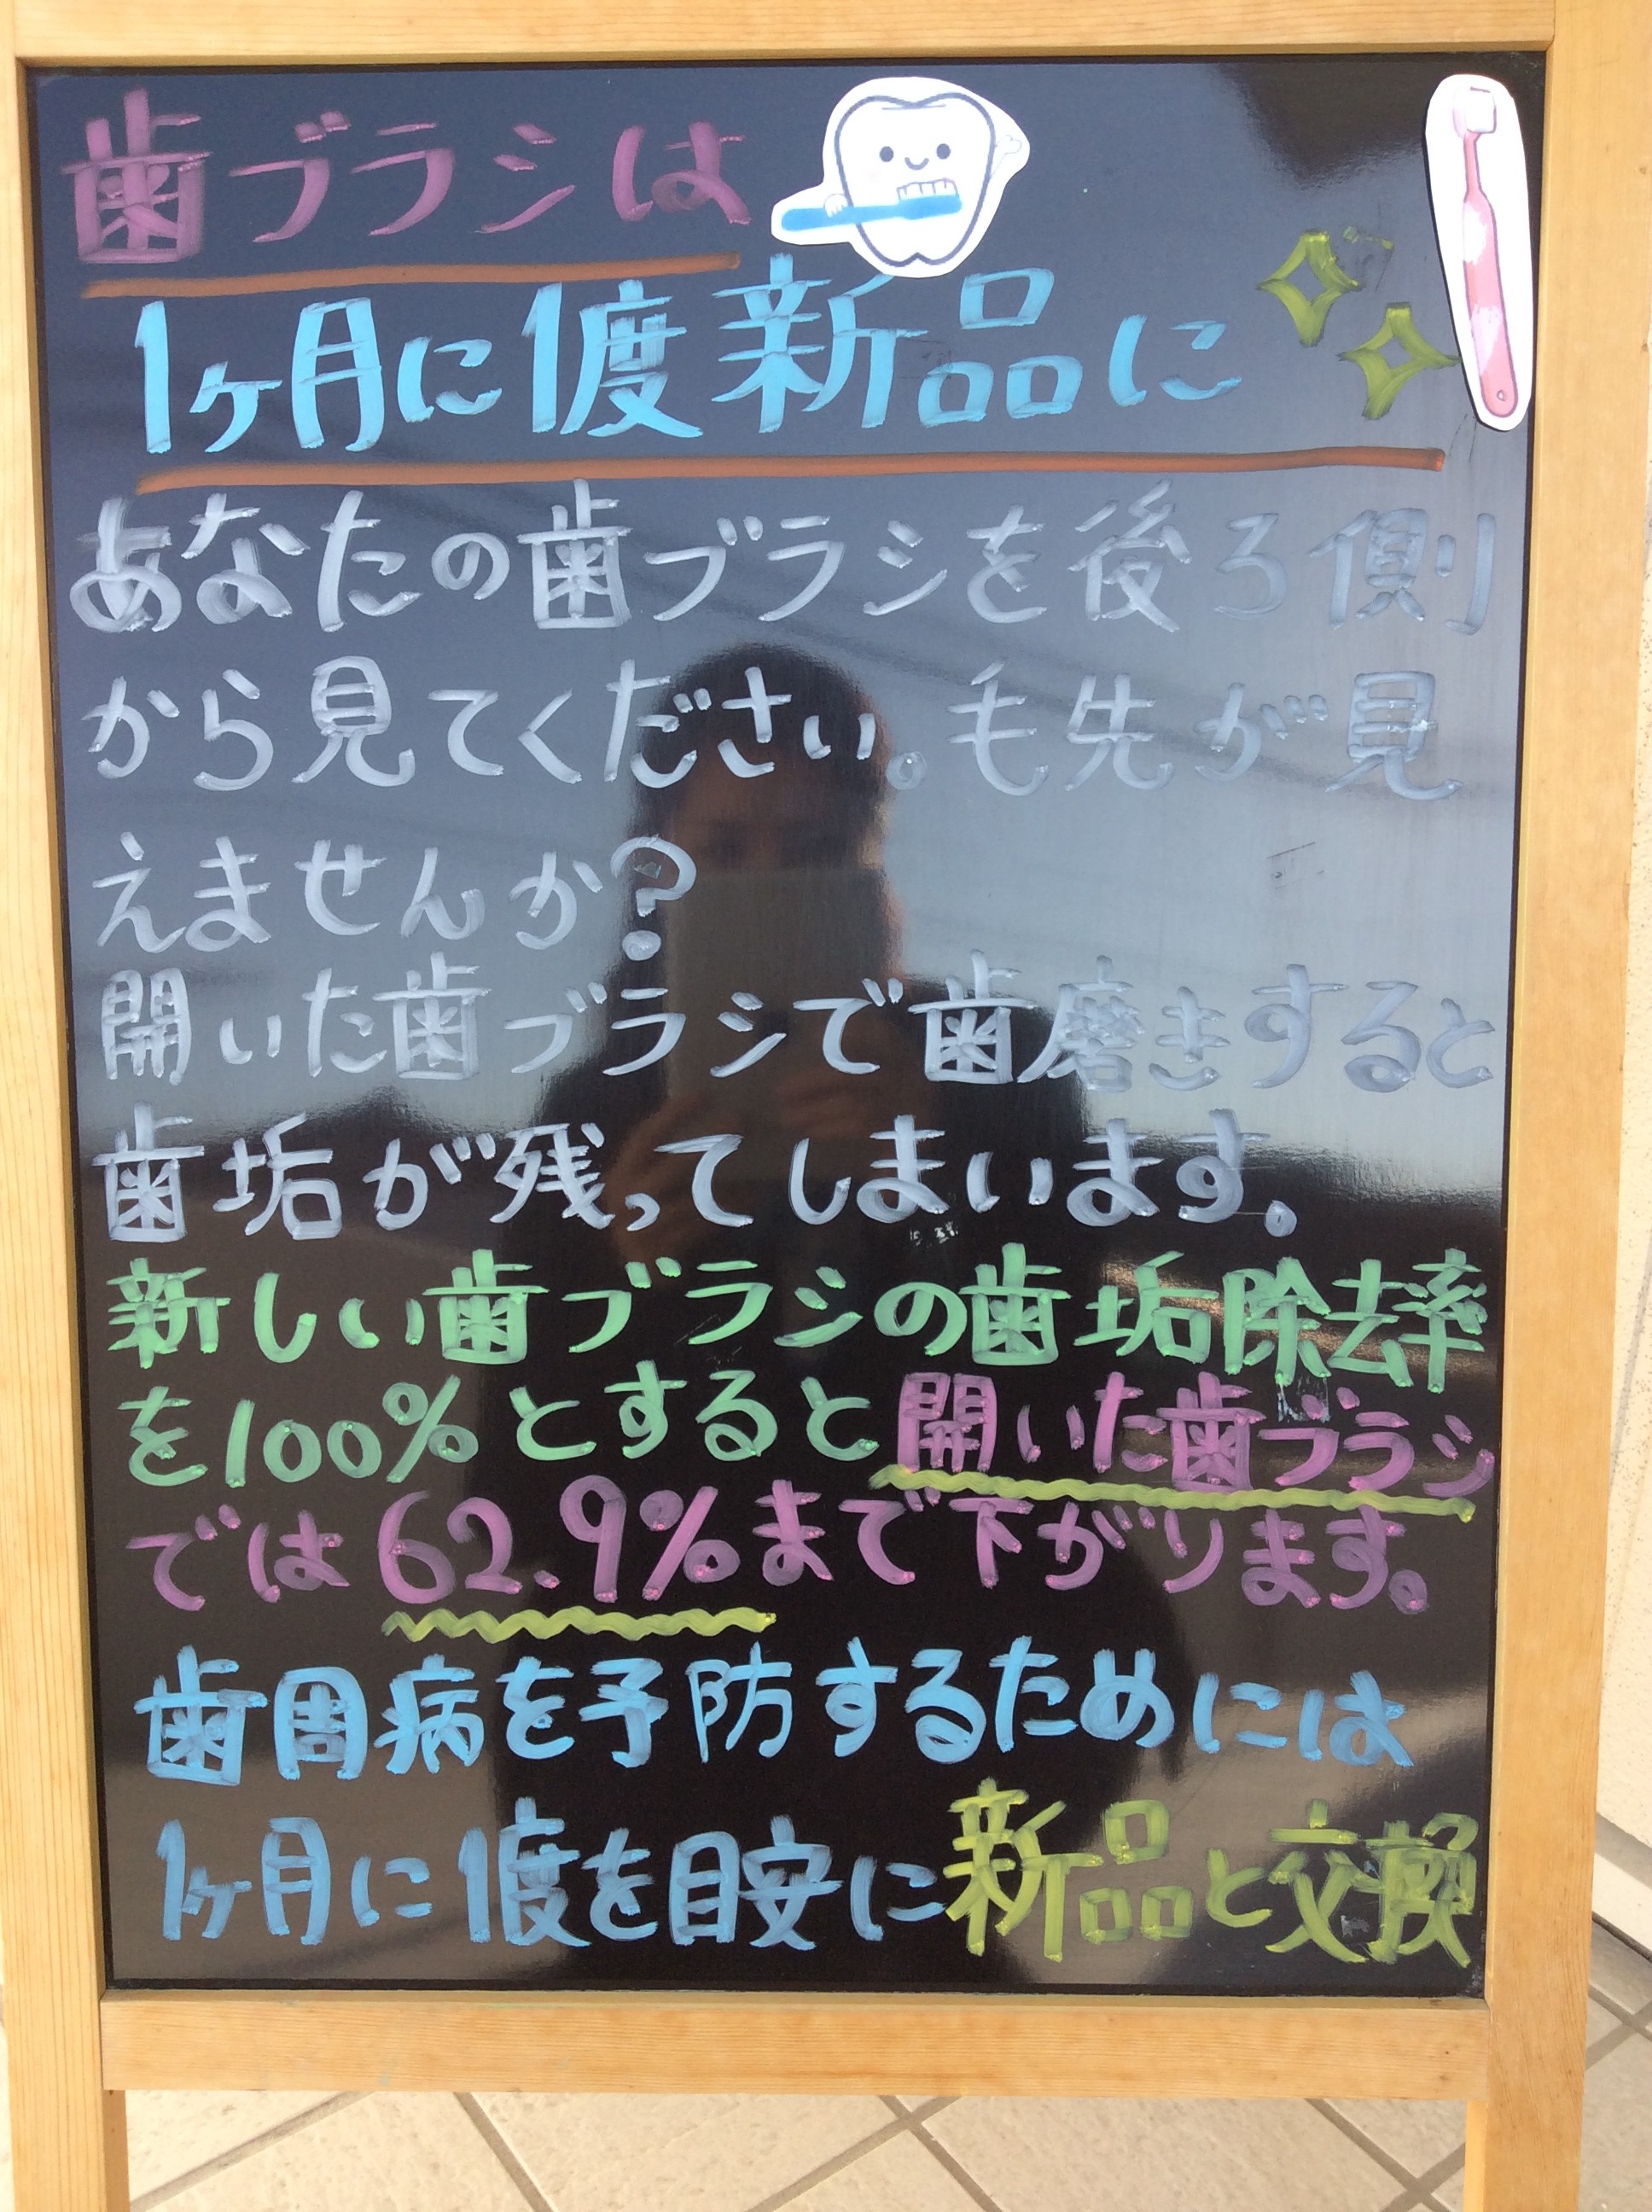 歯ブラシは
1ヶ月に1度新品に
あなたの歯ブラシを後ろ側
から見てください。毛先が見
えませんか?
開いた歯ブラシで歯磨きすると
歯垢が残ってしまいます。
新しい歯ブラシの歯垢除去率
を100%とすると開いた歯ブラシ
では62.9%まで下がります。
歯周病を予防するためには
1ヶ月に1度を目安に新品と交換